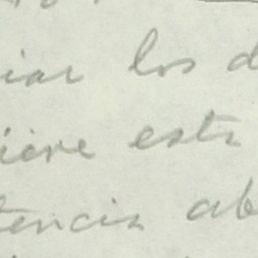 iar los d
iere esta
tencia ab